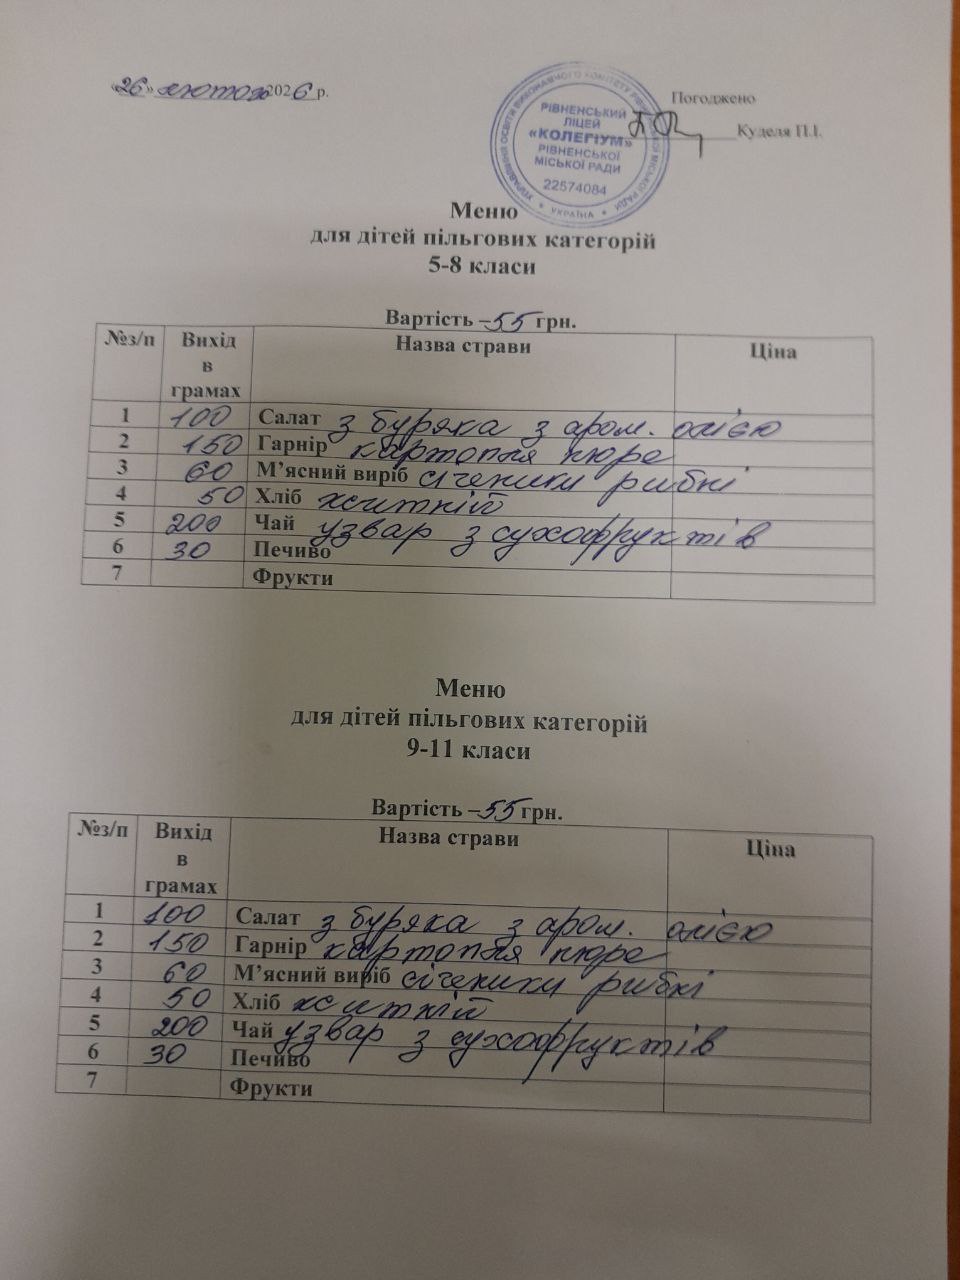 «26» лютого 2026 р.
Погоджено
Куделя П.І.
УПРАВЛІННЯ ОСВІТИ ВИКОНАВЧОГО КОМІТЕТУ РІВНЕНСЬКОЇ МІСЬКОЇ РАДИ
* УКРАЇНА *
РІВНЕНСЬКИЙ
ЛІЦЕЙ
«КОЛЕГІУМ»
РІВНЕНСЬКОЇ
МІСЬКОЇ РАДИ
22574084
Меню
для дітей пільгових категорій
5-8 класи
Вартість –55 грн.
№з/п Вихід в грамах Назва страви Ціна
1 100 Салат з буряка з аром. олією
2 150 Гарнір картопля пюре
3 60 М’ясний виріб січеники рибні
4 50 Хліб житній
5 200 Чай узвар з сухофруктів
6 30 Печиво
7 Фрукти
Меню
для дітей пільгових категорій
9-11 класи
Вартість –55 грн.
№з/п Вихід в грамах Назва страви Ціна
1 100 Салат з буряка з аром. олією
2 150 Гарнір картопля пюре
3 60 М’ясний виріб січеники рибні
4 50 Хліб житній
5 200 Чай узвар з сухофруктів
6 30 Печиво
7 Фрукти